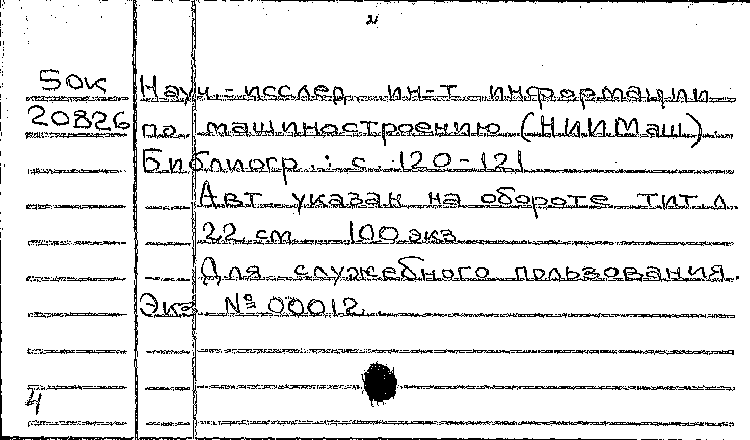 2
50к Науч.-исслед. ин-т информации
20826 по машиностроению (НИИМаш).
Библиогр.: с. 120-121
Авт. указан на обороте тит. л.
22 см 100 экз.
Для служебного пользования.
Экз. № 00012.
4